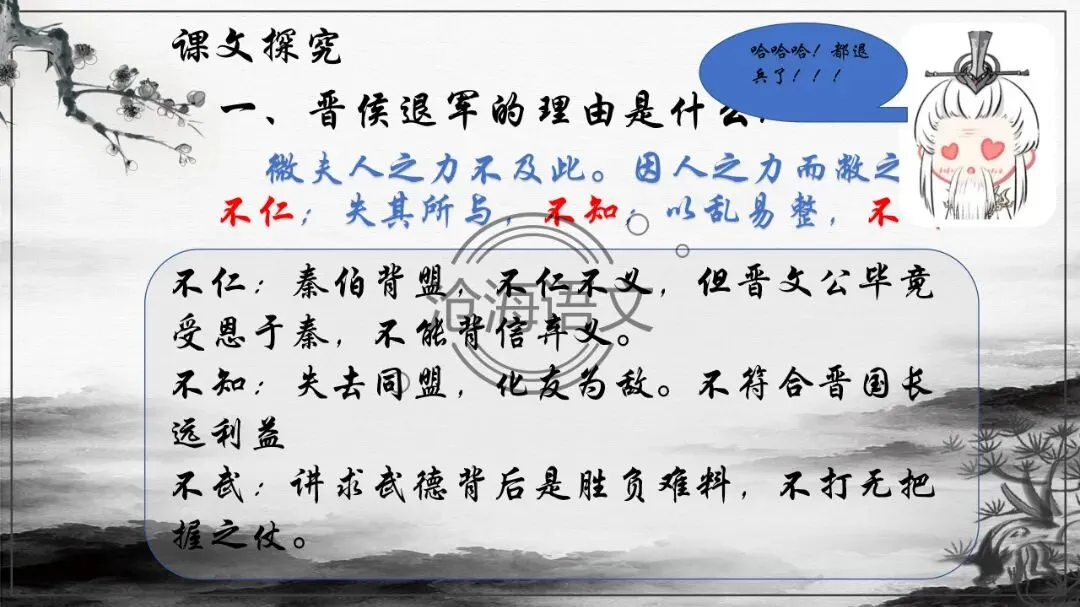 课文探究
哈哈哈！都退
兵了！！！
一、晋侯退军的理由是什么
微夫人之力不及此。因人之力而敝之
不仁；失其所与，不知；以乱易整，不
不仁：秦伯背盟，不仁不义，但晋文公毕竟
受恩于秦，不能背信弃义。
不知：失去同盟，化友为敌。不符合晋国长
远利益
不武：讲求武德背后是胜负难料，不打无把
握之仗。
沧海语文